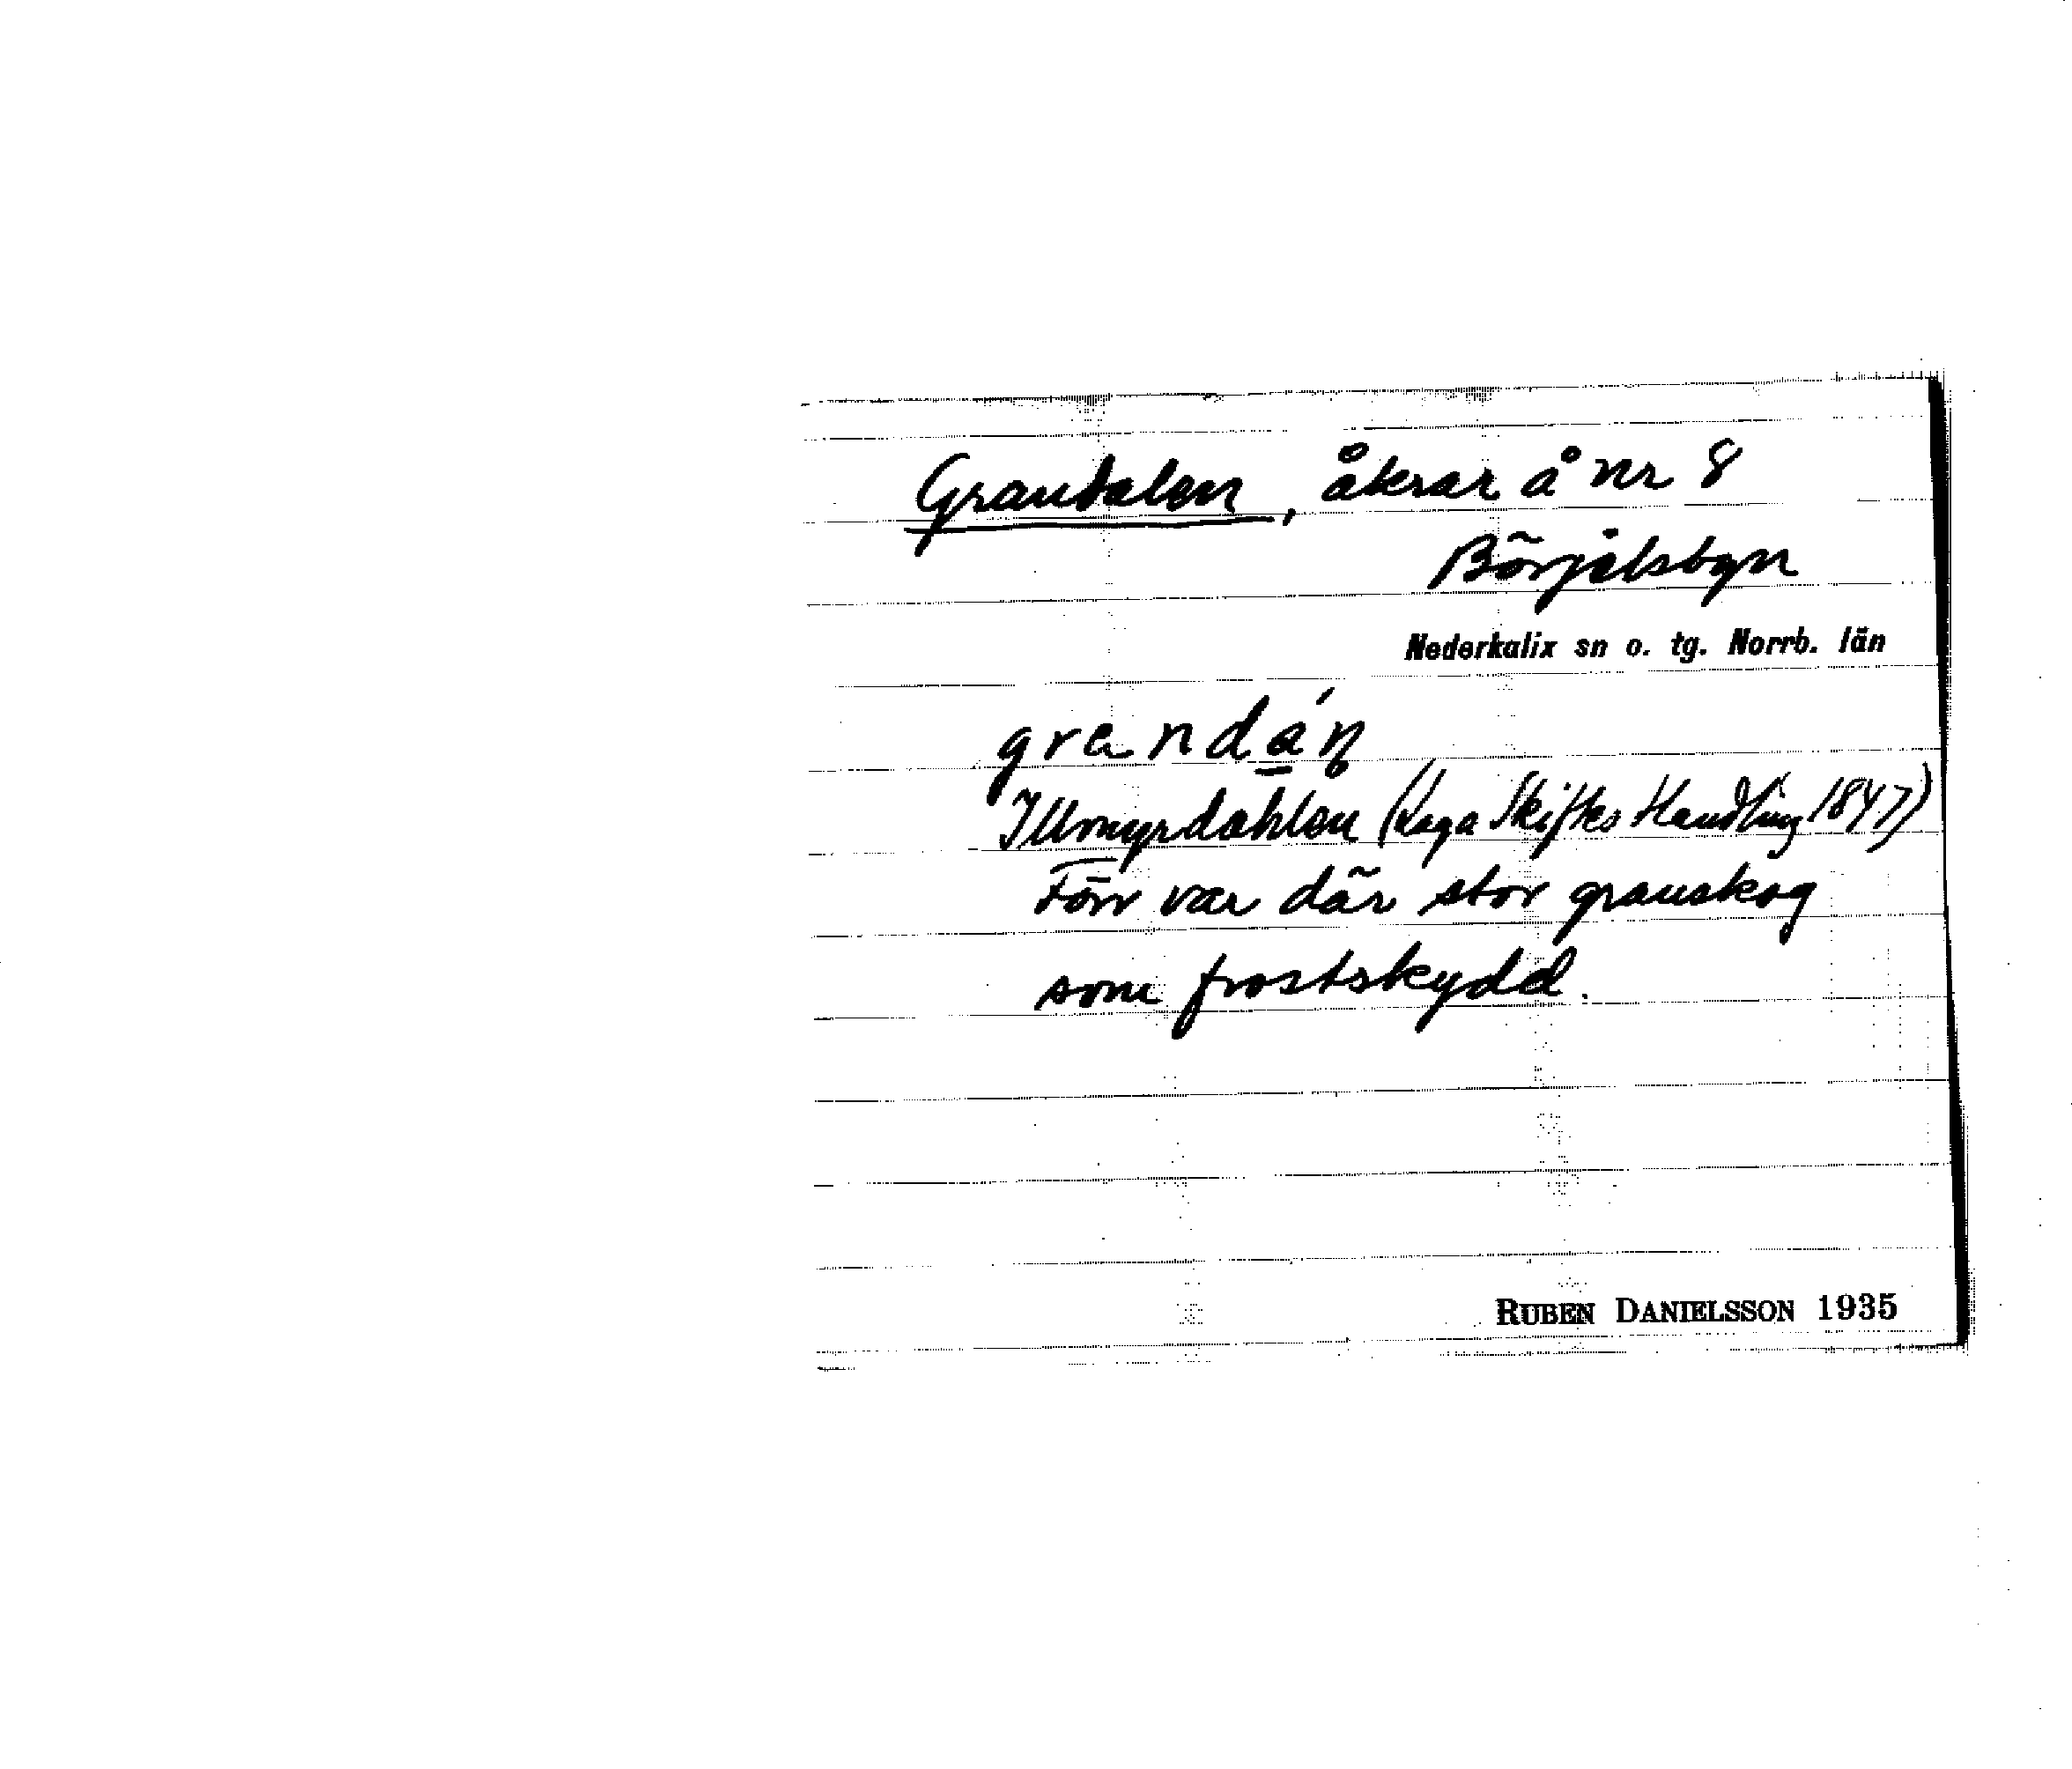 Grandalen, åkrar å nr 8
Börjelsbyn
Nederkalix sn o. tg. Norrb. län
grandáṇ
Illmyrdahlen (Laga Skiftes Handling 1847)
Förr var där stor granskog
som frostskydd.
RUBEN DANIELSSON 1935